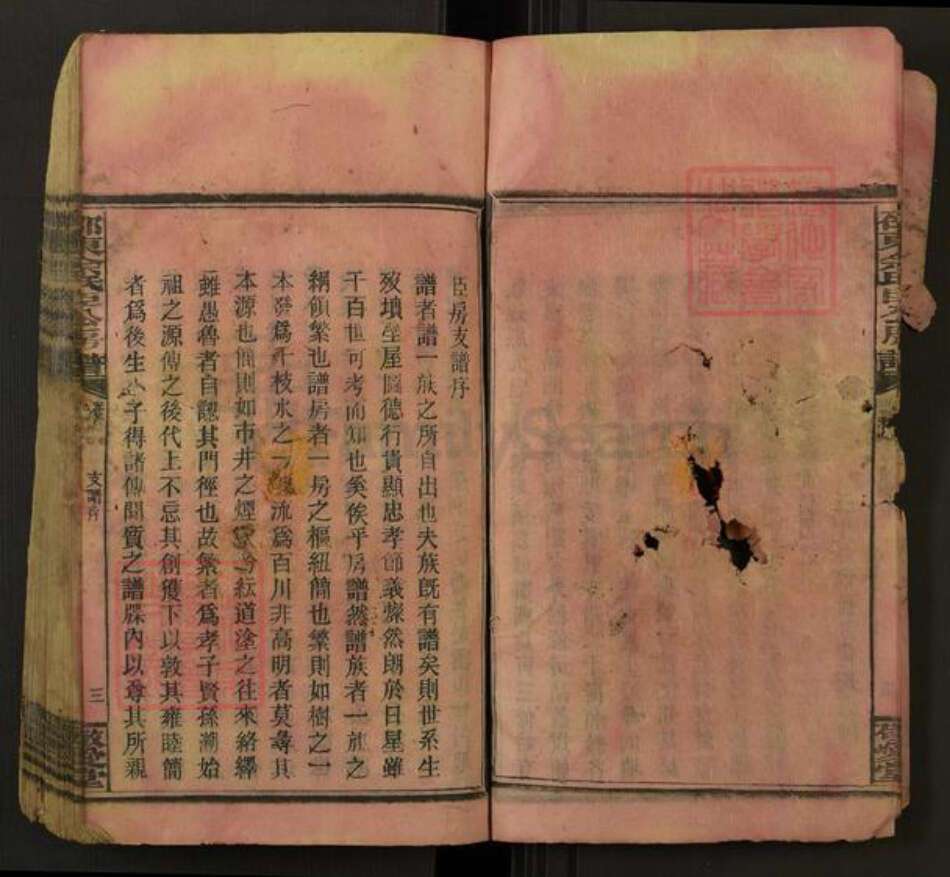 臣房支譜序
譜者譜一族之所自出也夫族旣有譜矣則世系生
歿墳塋屋圖德行貴顯忠孝節義燦然朗於日星雖
千百世可考而知也奚俟乎房譜然譜族者一族之
綱領繁也譜房者一房之樞紐簡也繁則如樹之一
本發爲千枝水之一流爲百川非高明者莫尋其
本源也簡則如市井之煙紛紜道塗之往來絡繹
雖愚魯者自認其門徑也故繁者爲孝子賢孫溯始
祖之源傳之後代上不忘其創獲下以敦其雍睦簡
者爲後生小子得諸傳聞質之譜牒內以尊其所親
支譜序
三